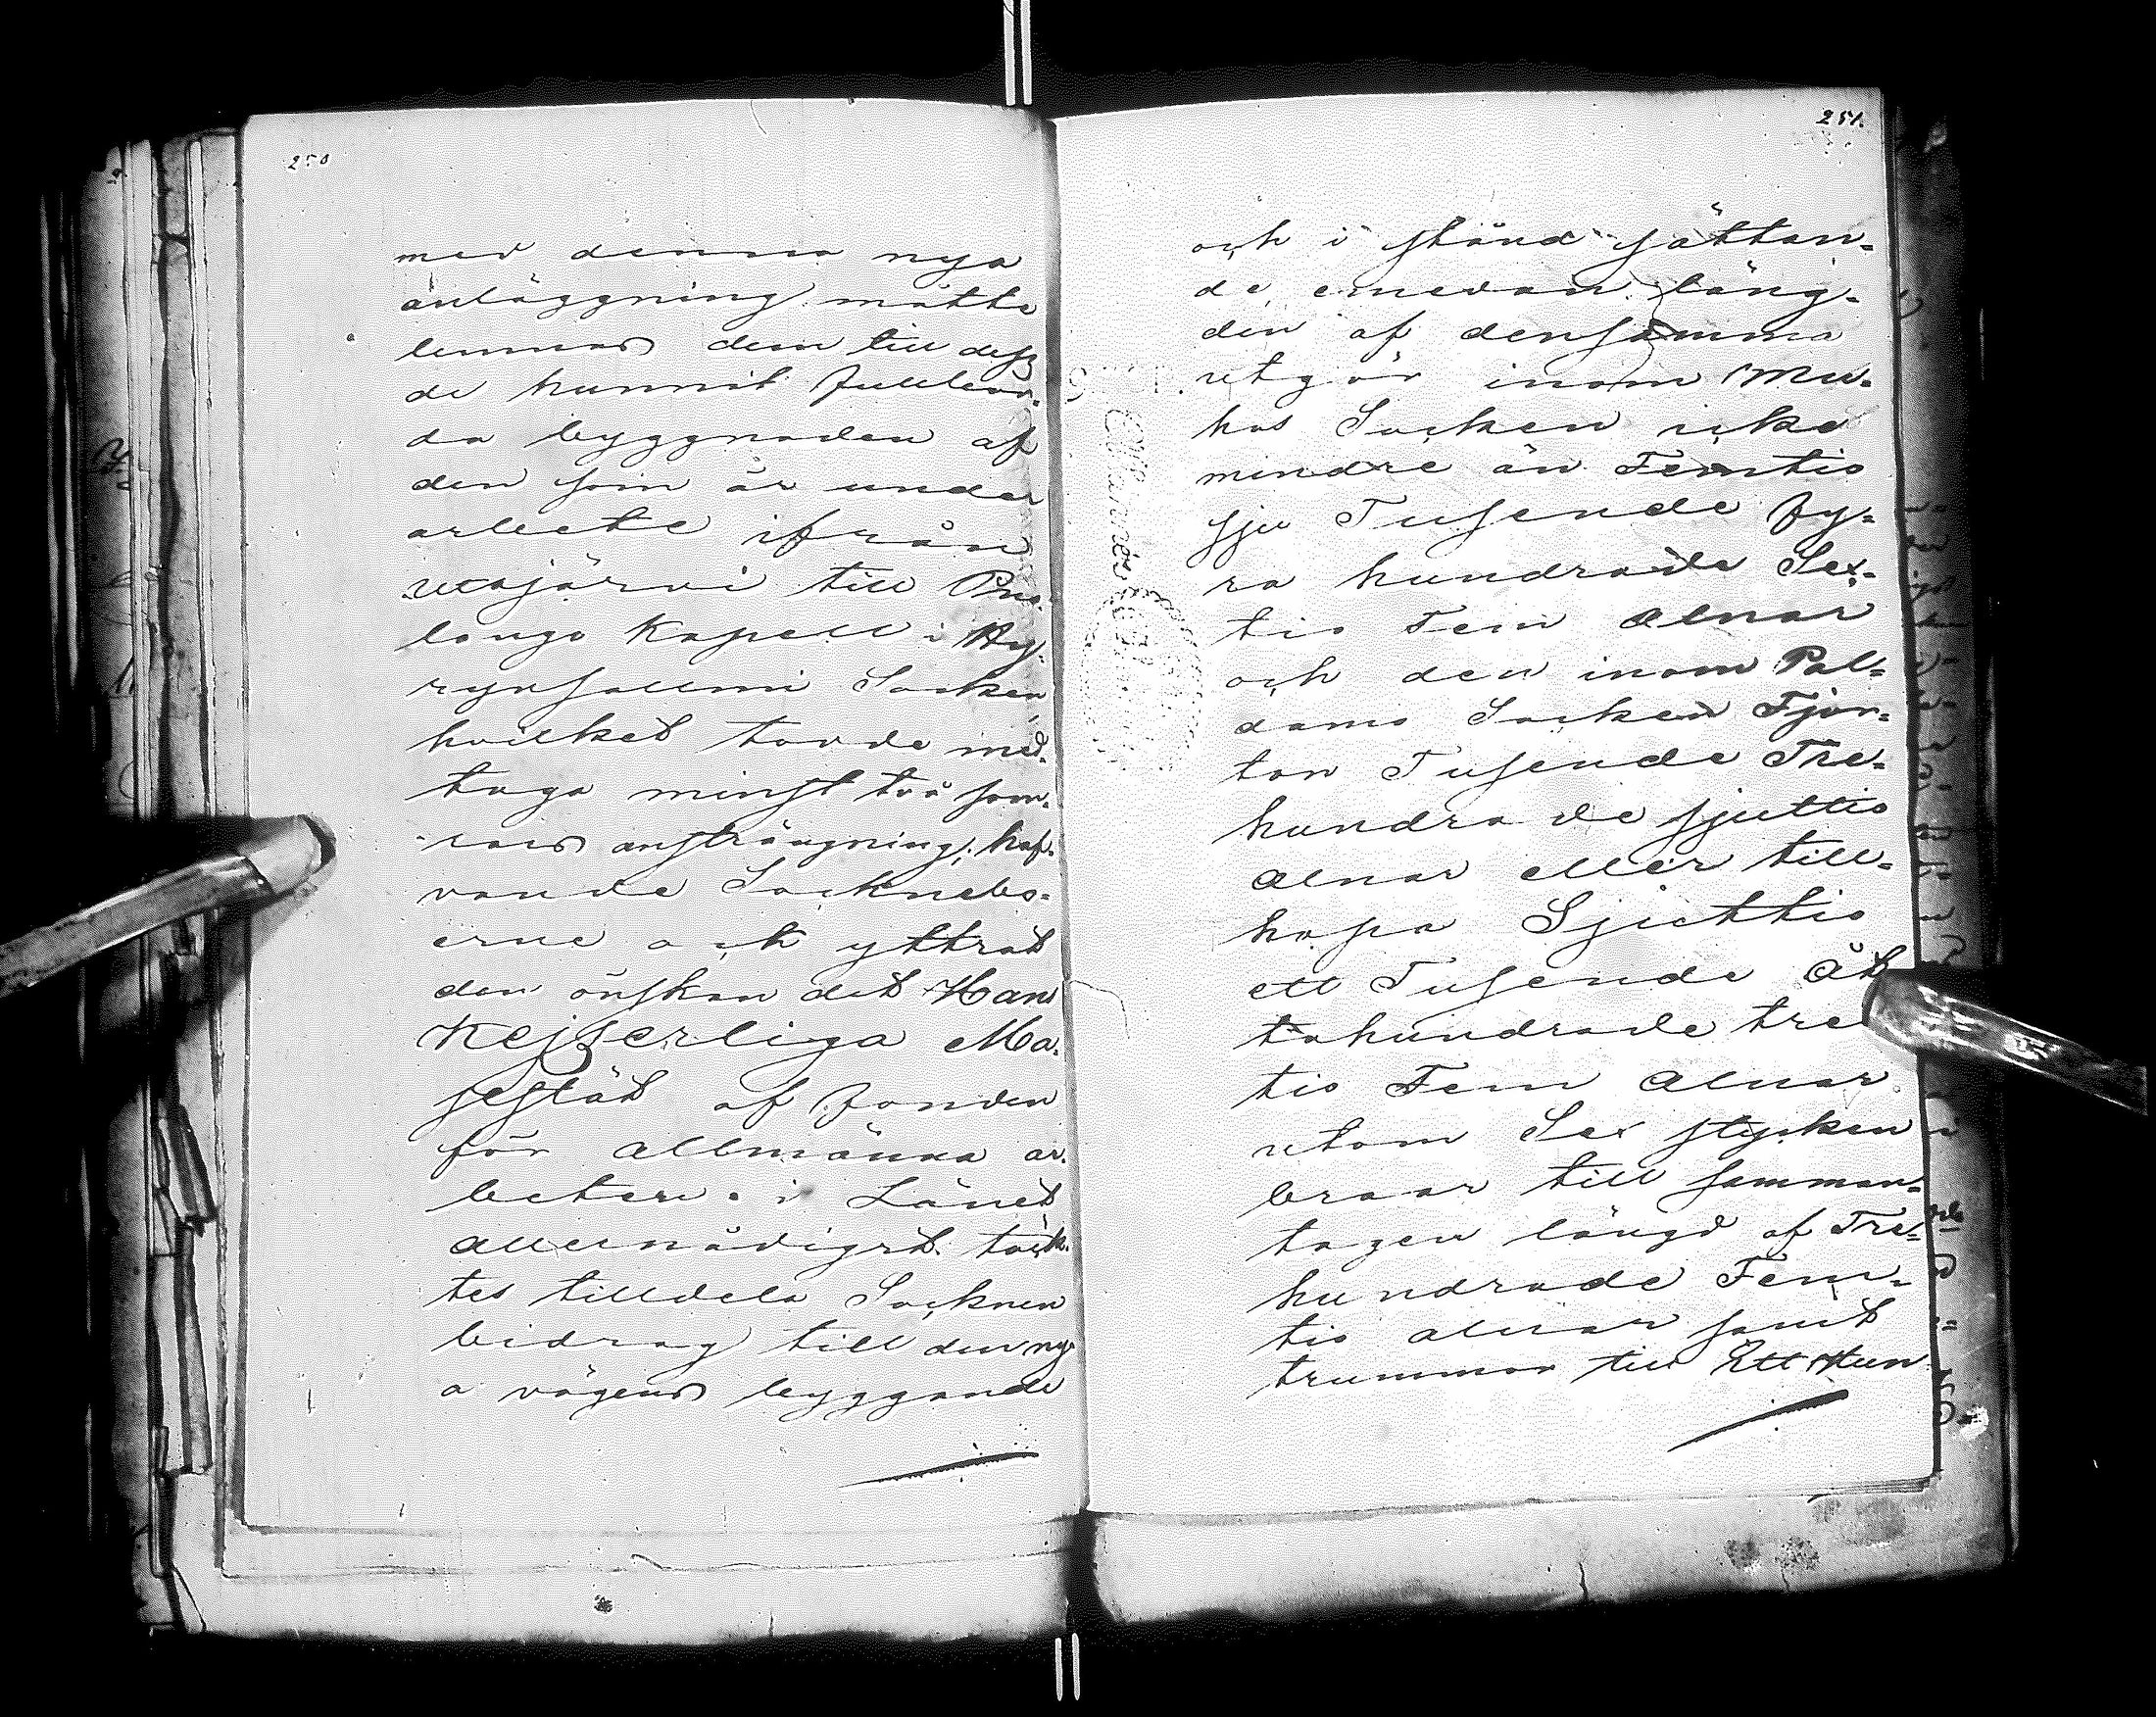 250
med denna nya
anläggning måtte
lemnas dem till desz
de hunnit fullbor-
da byggnaden af
den som är under
arbete ifrån
Utajärvi till Puo-
lango Kapell i Hy-
rynsallmi Socken,
hvilket torde med-
taga minst två som-
rars ansträngning; haf-
vande Socknebo-
erne ock yttrat
den önskan det Hans
Kejserliga Ma-
jestät af fonden
för allmänna ar-
beten i Länet
allernådigst täck-
tes tilldela Socknen
bidrag till den ny-
a vägens byggande
251.
och i stånd sättan-
de, emedan läng-
den af densamma
utgör inom Mu-
hos Socken icke
mindre än Femtio
sju Tusende fy-
ra hundrade Sex-
tio Fem alnar
och den inom Pal-
damo Socken Fjor-
ton Tusende Tre-
hundrade sjuttio
alnar eller till-
hopa Sjuttio
ett Tusende Åt
tahundrade tret
tio Fem alnar
utom Sex stycken
broar till samman-
tagen längd af Tre-
hundrade Fem-
tio alnar samt
trummor till Ett Hun